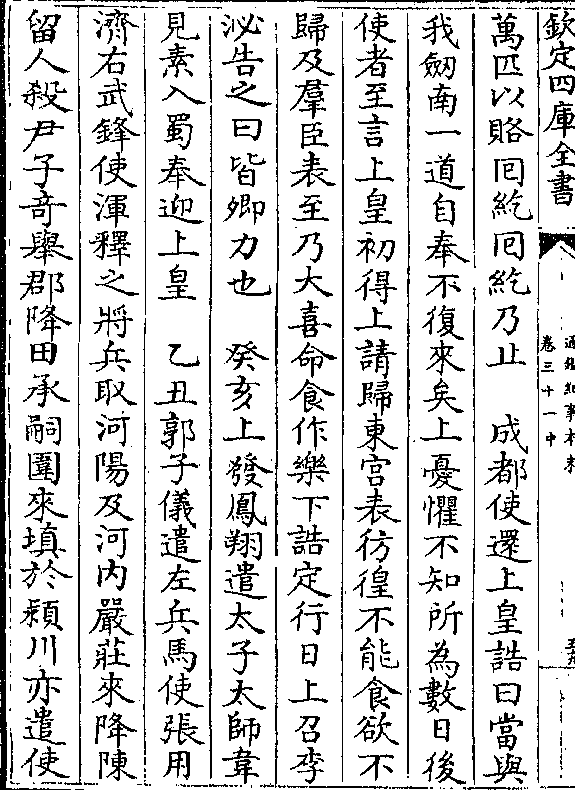 欽定四庫全書
通鑑紀事本末
卷三十一中
萬匹以賂回紇回紇乃止　成都使還上皇誥曰當與
我劒南一道自奉不復來矣上憂懼不知所為數日後
使者至言上皇初得上請歸東宮表彷徨不能食欲不
歸及羣臣表至乃大喜命食作樂下誥定行日上召李
泌告之曰皆卿力也　癸亥上發鳳翔遣太子太師韋
見素入蜀奉迎上皇　乙丑郭子儀遣左兵馬使張用
濟右武鋒使渾釋之將兵取河陽及河内嚴莊來降陳
留人殺尹子竒舉郡降田承嗣圍來填於潁川亦遣使